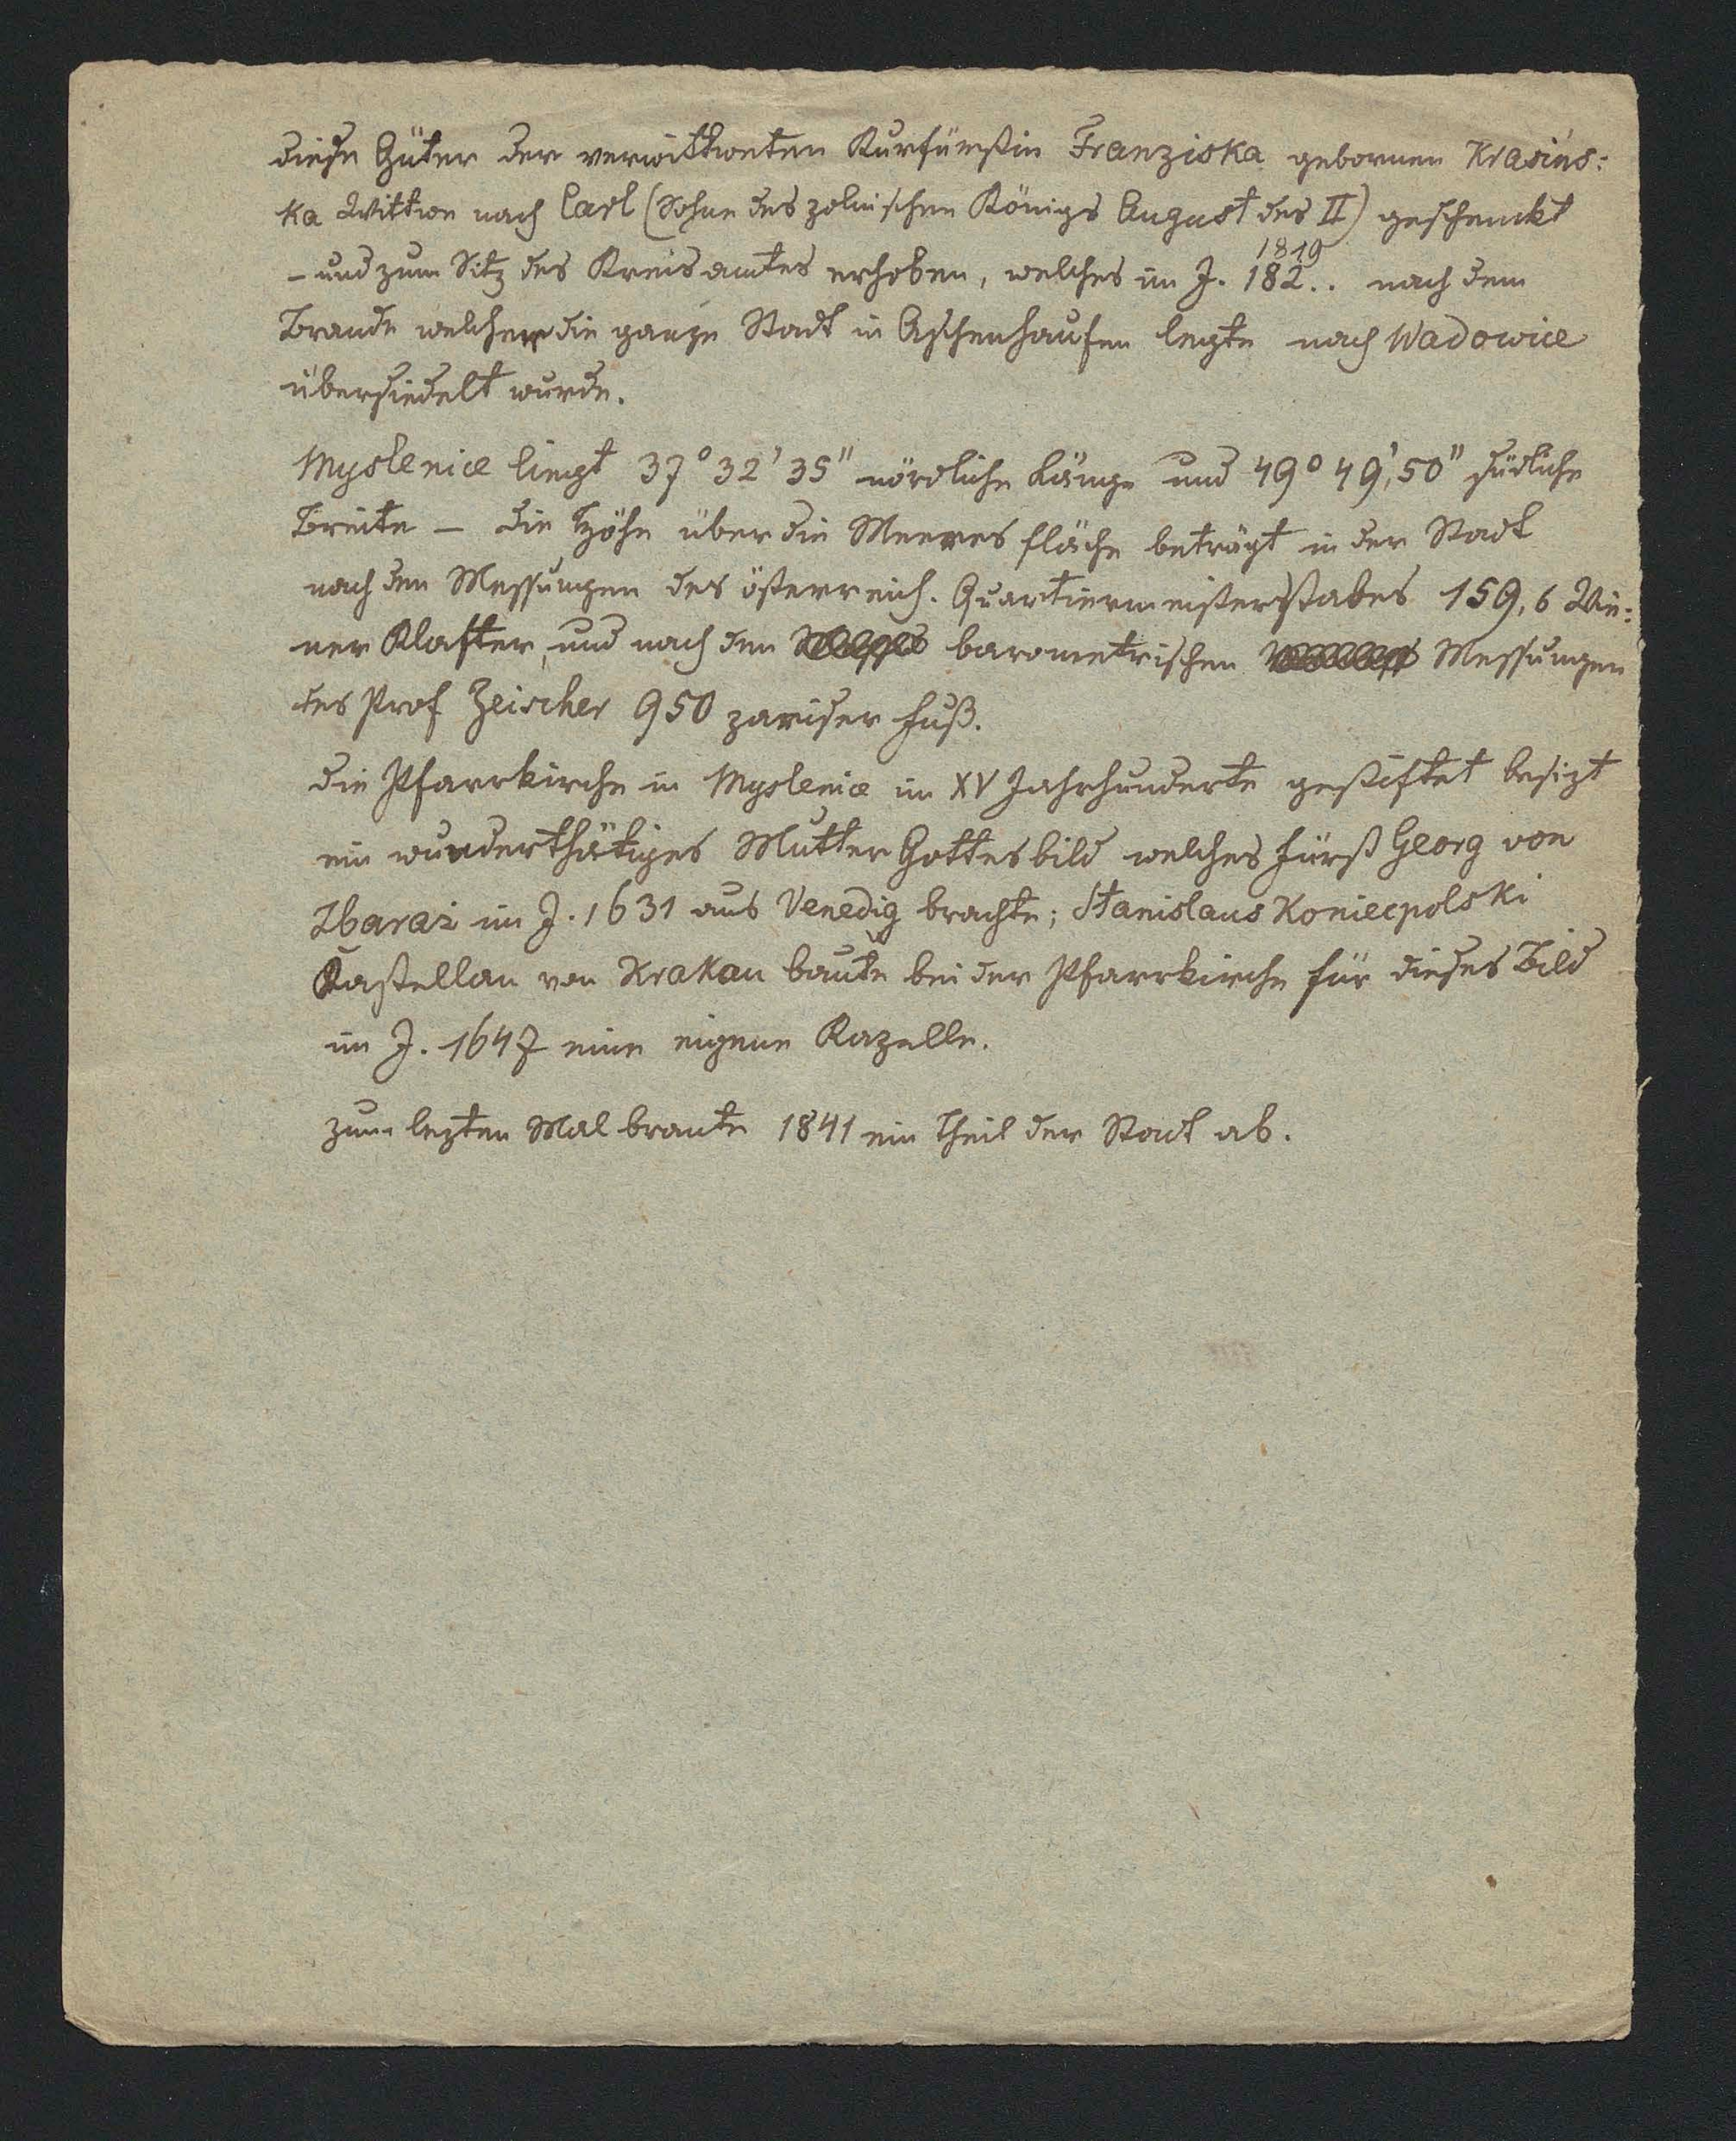 diese Güter der verwittweten Kurfürstin Franziska gebornen Krasińs:
ka Wittwe nach Carl (Sohne des polnischen Königs August des II) geschenkt
1819
– und zum Sitz des Kreisamtes erhoben, welches im J. 182.. nach dem
Brande welcher die ganze Stadt in Aschenhaufen legte nach Wadowice
übersiedelt wurde.
Myslenice liegt 37° 32' 35" nördliche Länge und 49° 49', 50" südliche
Breite – die Höhe über die Meeres fläche beträgt in der Stadt
nach den Messungen des österreich. Quartiermeisterstabes 159,6 Wie:
ner Klafter, und nach den barometrischen Messungen
des Prof Zeischer 950 pariser Fuß.
Die Pfarrkirche in Myslenice im XV Jahrhunderte gestiftet besizt
ein wunderthätiges Mutter Gottes bild welches Fürst Georg von
Zbaraż im J. 1631 aus Venedig brachte; Stanislaus Koniecpolski
Kastellan von Krakau baute bei der Pfarrkirche für dieses Bild
im J. 1647 eine eigene Kapelle.
Zum lezten Mal brante 1841 ein Theil der Stadt ab.